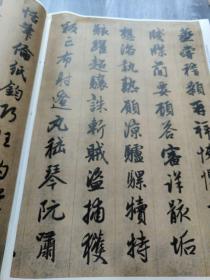 嘗稽顙再拜悚懼
牋牒簡要顧答審詳骸垢
想浴執熱願涼驢騾犢特
駭躍超驤誅斬賊盜捕獲
叛亡布射遼丸嵇琴阮嘯
恬筆倫紙鈞巧任釣